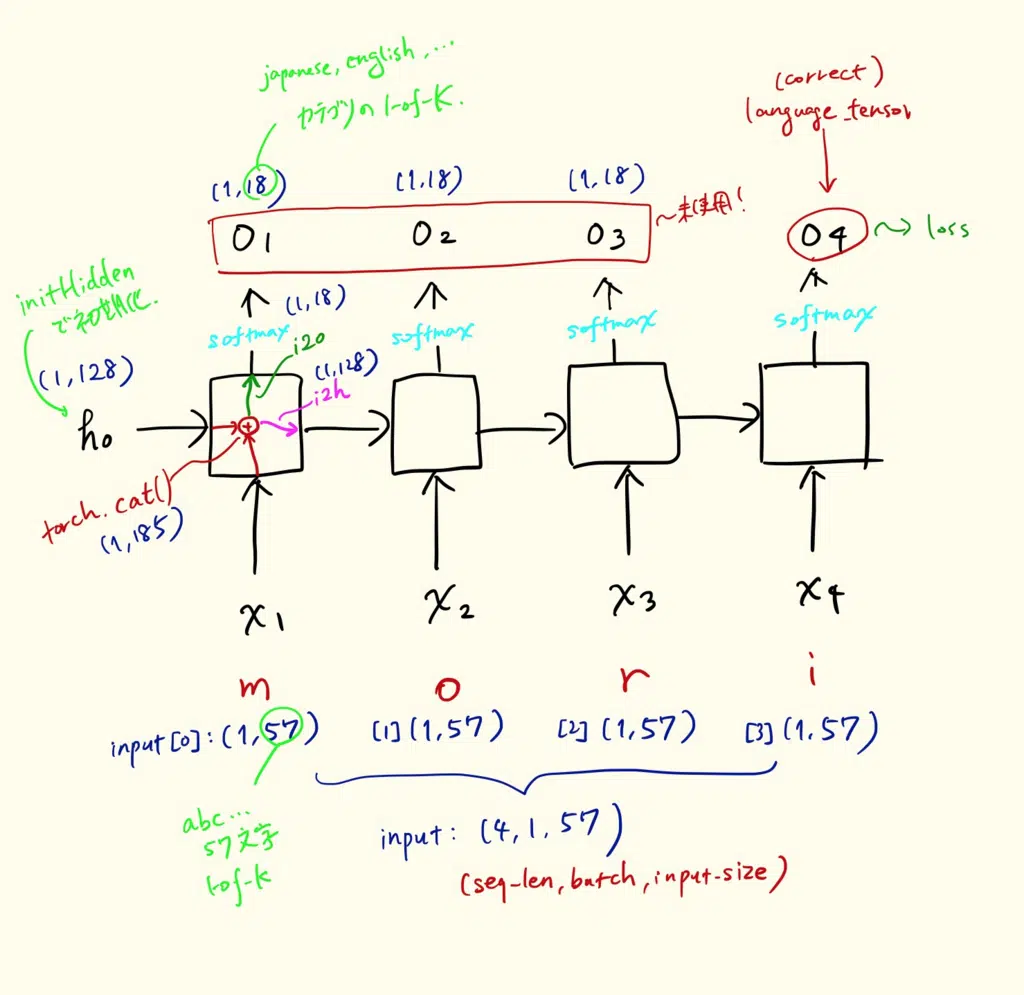 japanese, english, ...
カテゴリの 1-of-K.
(correct)
language_tensor
(1,18)
(1,18)
(1,18)
~未使用!
O1
O2
O3
O4
loss
initHidden
で初期化.
(1,18)
softmax
softmax
softmax
softmax
i2o
(1,128)
(1,128)
i2h
h0
torch.cat()
(1,185)
x1
x2
x3
x4
m
o
r
i
input[0]: (1,57)
[1](1,57)
[2](1,57)
[3](1,57)
abc...
57文字
1-of-K
input: (4,1,57)
(seq-len, batch, input-size)